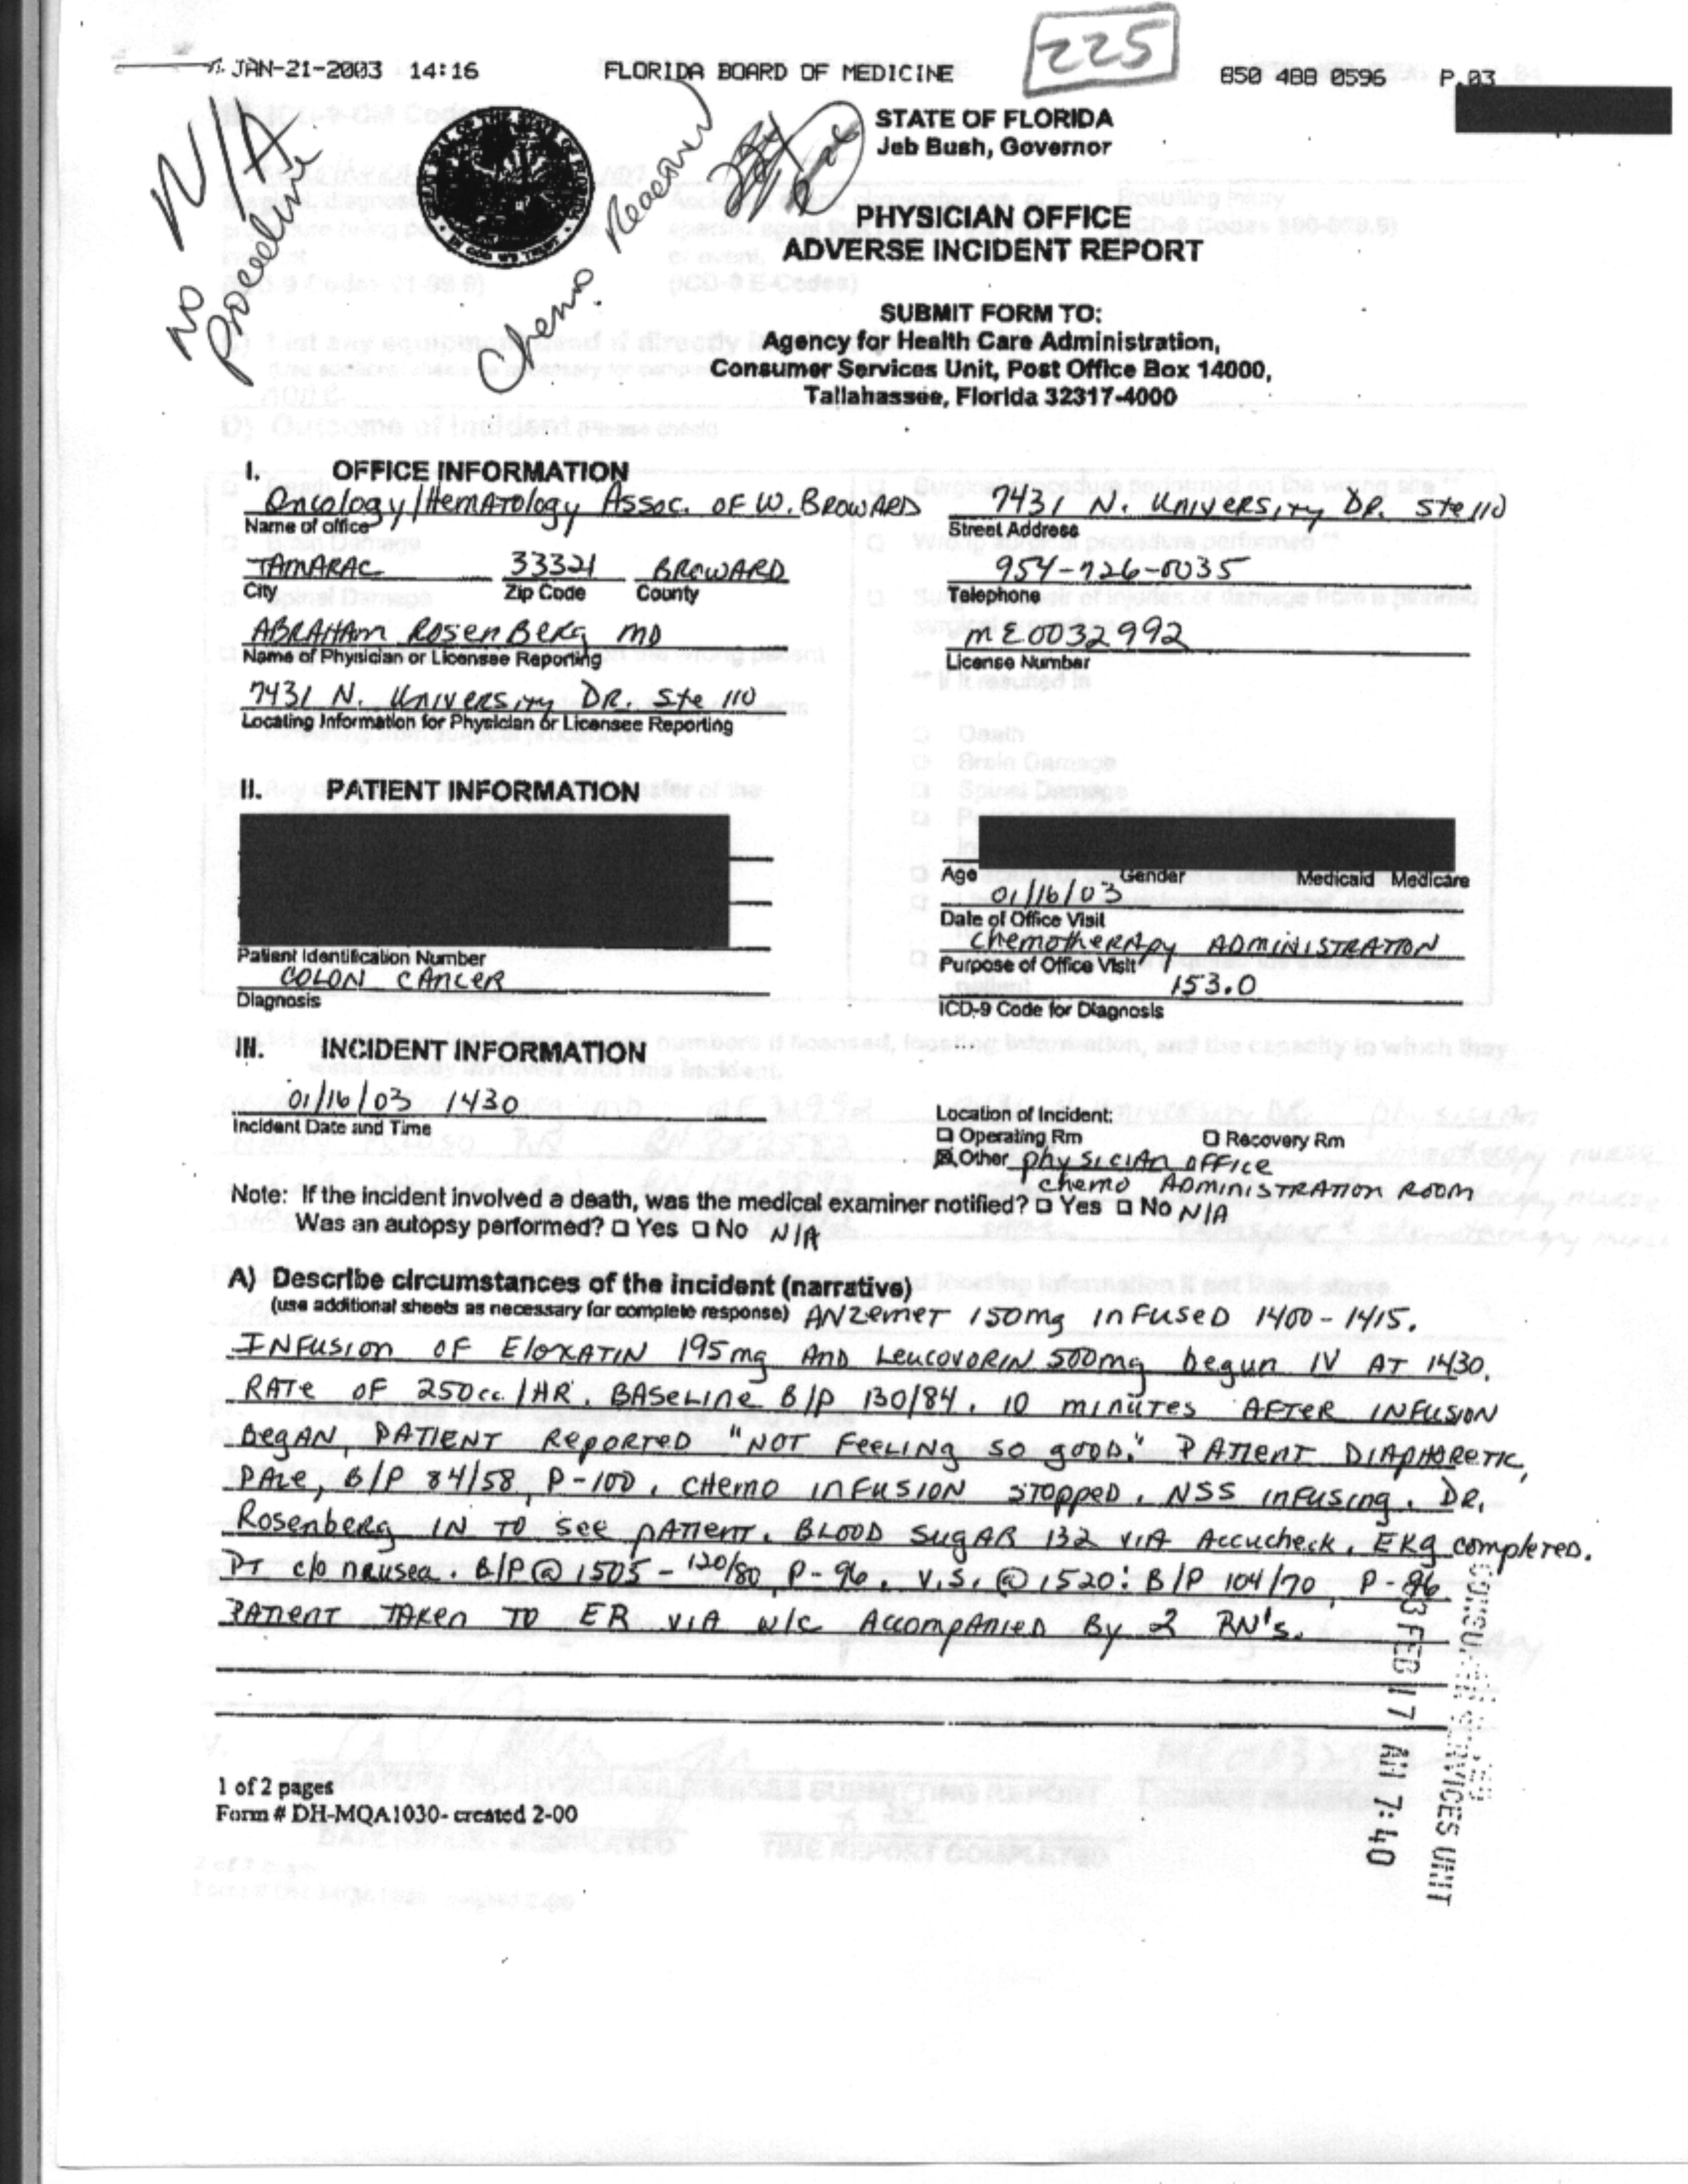 JAN-21-2003 14:16 FLORIDA BOARD OF MEDICINE 850 488 0596 P.03
225
N/A
No Procedure
Chemo. Reaction
STATE OF FLORIDA
Jeb Bush, Governor
PHYSICIAN OFFICE
ADVERSE INCIDENT REPORT
SUBMIT FORM TO:
Agency for Health Care Administration,
Consumer Services Unit, Post Office Box 14000,
Tallahassee, Florida 32317-4000
I. OFFICE INFORMATION
Oncology/Hematology Assoc. OF W. BROWARD 7431 N. University DR. Ste 110
Name of office Street Address
TAMARAC 33321 BROWARD 954-726-0035
City Zip Code County Telephone
ABRAHAM ROSENBERG MD ME0032992
Name of Physician or Licensee Reporting License Number
7431 N. University DR. Ste 110
Locating Information for Physician or Licensee Reporting
II. PATIENT INFORMATION
Age Gender Medicaid Medicare
01/16/03
Date of Office Visit
Patient Identification Number Chemotherapy ADMINISTRATION
COLON CANCER Purpose of Office Visit
Diagnosis 153.0
ICD-9 Code for Diagnosis
III. INCIDENT INFORMATION
01/16/03 1430
Incident Date and Time
Location of Incident:
Operating Rm Recovery Rm
Other physician office
chemo ADMINISTRATION ROOM
Note: If the incident involved a death, was the medical examiner notified? Yes No N/A
Was an autopsy performed? Yes No N/A
A) Describe circumstances of the incident (narrative)
(use additional sheets as necessary for complete response) ANZemeT 150mg inFused 1400-1415.
INFusion OF EloxATIN 195mg AND Leucovorin 500mg begun IV AT 1430.
RATE OF 250cc/HR. BASeline B/P 130/84. 10 minutes AFTER INFUSION
BegAN, PATIENT RePORTED "NOT FeeLing so good." PATIENT DIAPHORETIC,
PALE, B/P 84/58, P-100. CHEMO INFUSION STOPPED. NSS infusing. DR.
Rosenberg IN TO see pATient. BLOOD SugAR 132 VIA Accucheck. EKG completed.
PT c/o nausea. B/P @ 1505 - 120/80, P-96. V.S. @ 1520: B/P 104/70, P-86.
PATIENT TAKEN TO ER VIA w/c Accompanied By 2 RN's.
03 FEB 17 AM 7:40
CONSUMER SERVICES UNIT
1 of 2 pages
Form # DH-MQA1030- created 2-00